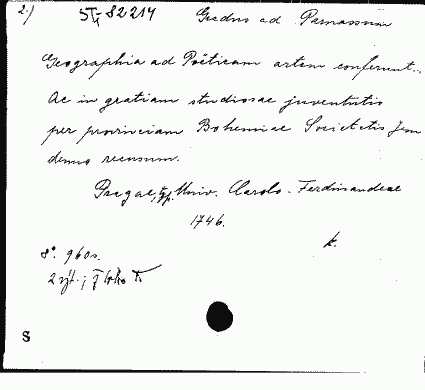 2.) 54 82214 Gradus ad Parnassum
Geographia ad Poëticam artem conferunt..
Ac in gratiam studiosae juventutis
per provinciam Bohemiae Societatis Jesu
denuo recusum.
Pragae, typ. Univ. Carolo-Ferdinandeae
1746.
k.
8°. 960 s.
S